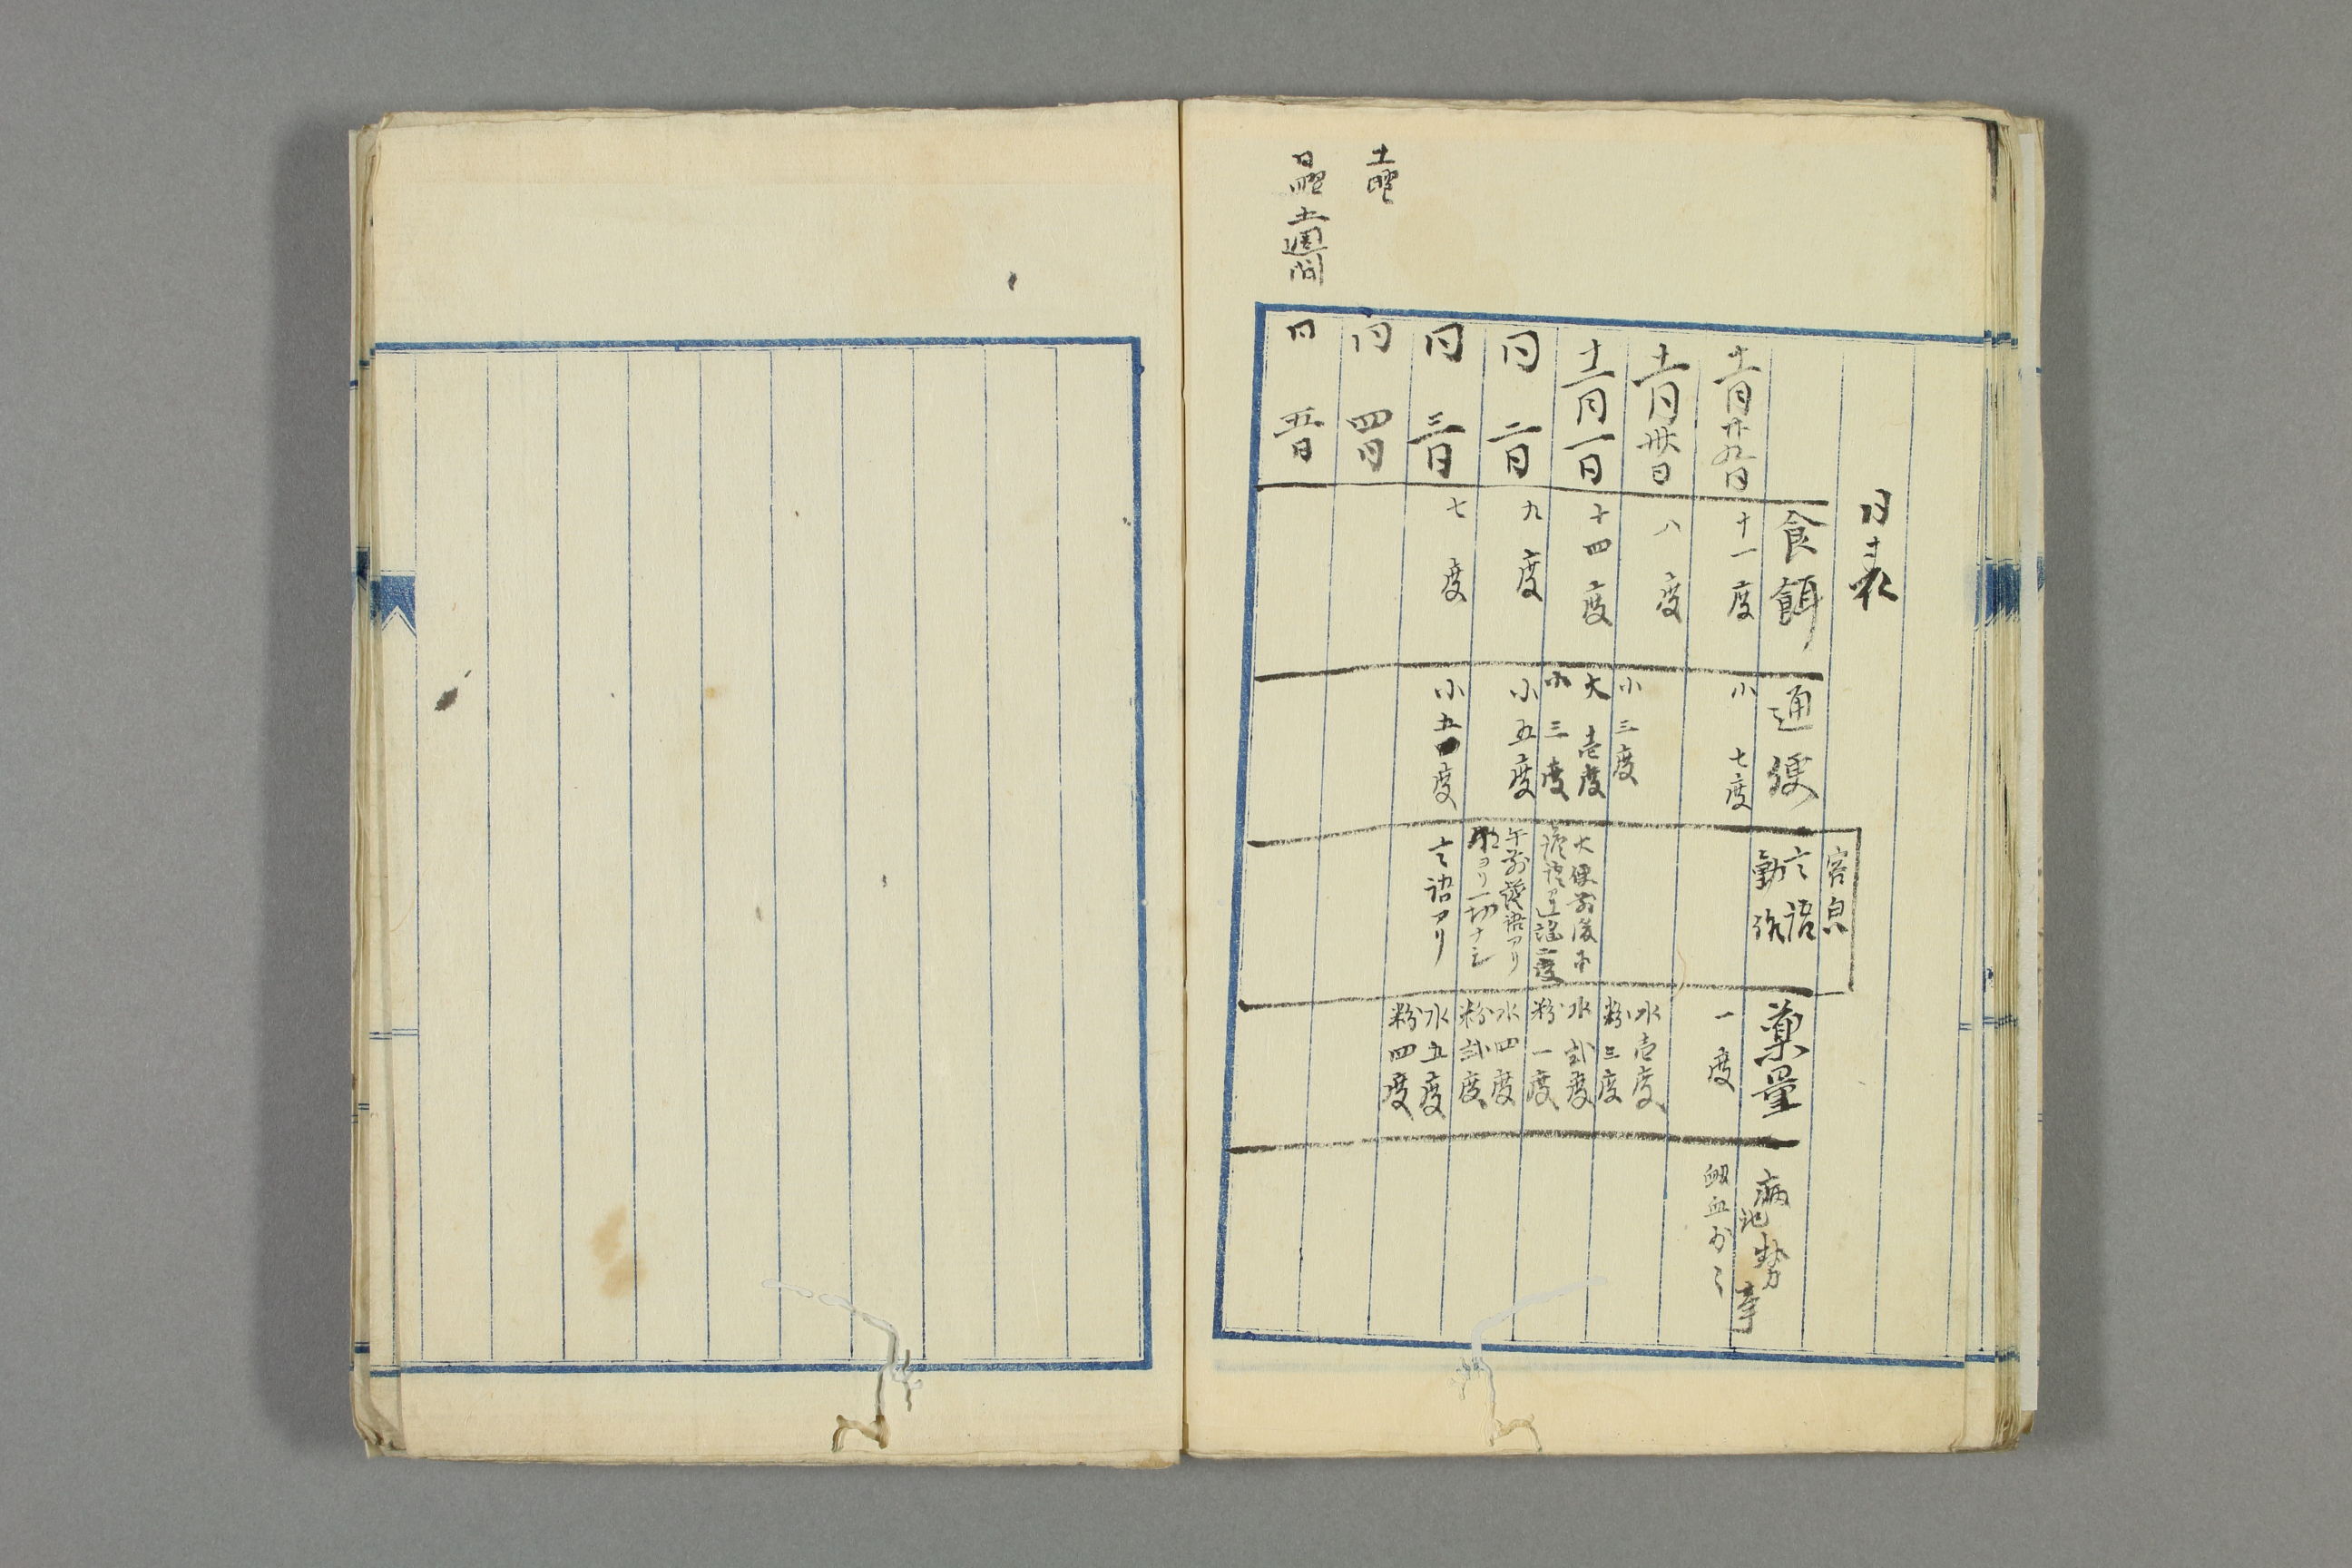 日表
食餌
通便
容息
言語
動作
薬量
病勢
十一月廿九日
十一度
小 七度
一度
衂血少々
十一月卅日
八度
小三度
水壱度
粉三度
十二月一日
十四度
大 壱度
小 三度
大便前後
水弐度
粉一度
同 二日
九度
小五度
午前譫語アリ
ヨリ一切ナシ
水四度
粉弐度
同 三日
七度
小五度
言語アリ
水五度
粉四度
土曜
同 四日
日曜
土週間
同 五日